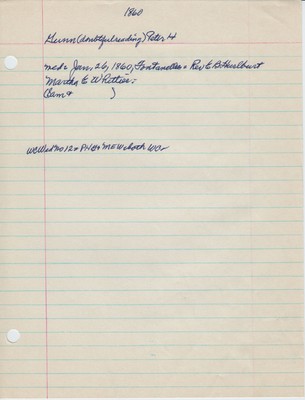 1860
Gunn (doubtful reading) Peter H
md Jan. 26, 1860, Fontanelle Rev E. B. Hurlburt
Martha E Whittier
(Cam &        )
WCWed No 12 PHG MEW both WCo